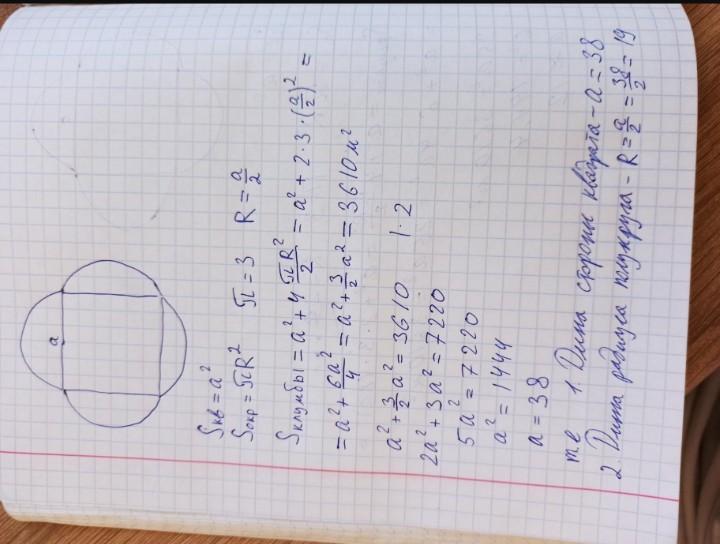 a
Sкв = a²
Sокр = πR² π = 3 R = a/2
Sклумбы = a² + 4 πR²/2 = a² + 2·3·(a/2)² =
= a² + 6a²/4 = a² + 3/2 a² = 3610 м²
a² + 3/2 a² = 3610 |·2
2a² + 3a² = 7220
5a² = 7220
a² = 1444
a = 38
те 1. Длина стороны квадрата - a = 38
2. Длина радиуса полукруга - R = a/2 = 38/2 = 19